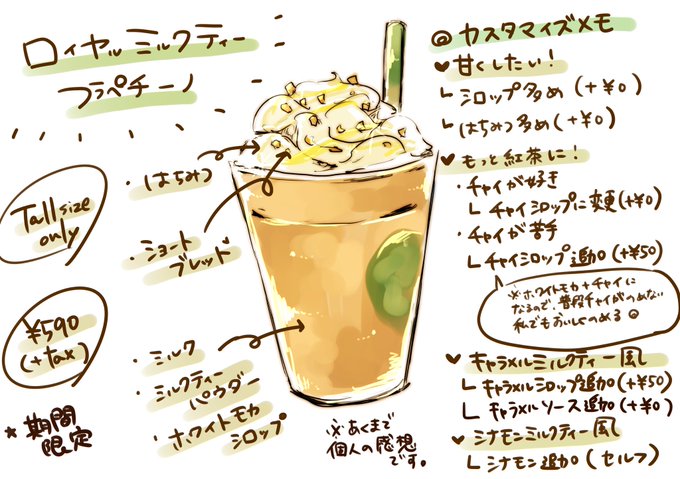 ロイヤルミルクティー
フラペチーノ
Tall size
only
¥590
(+tax)
*期間
限定
・はちみつ
・ショート
ブレッド
・ミルク
・ミルクティー
パウダー
・ホワイトモカ
シロップ
※あくまで
個人の感想
です。
◎カスタマイズメモ
♥甘くしたい!
└シロップ多め(+¥0)
└はちみつ多め(+¥0)
♥もっと紅茶に!
・チャイが好き
└チャイシロップに変更(+¥0)
・チャイが苦手
└チャイシロップ追加(+¥50)
※ホワイトモカ+チャイに
なるので、普段チャイがのめない
私でもおいしくのめる☺
♥キャラメルミルクティー風
└キャラメルシロップ追加(+¥50)
└キャラメルソース追加(+¥0)
♥シナモンミルクティー風
└シナモン追加(セルフ)